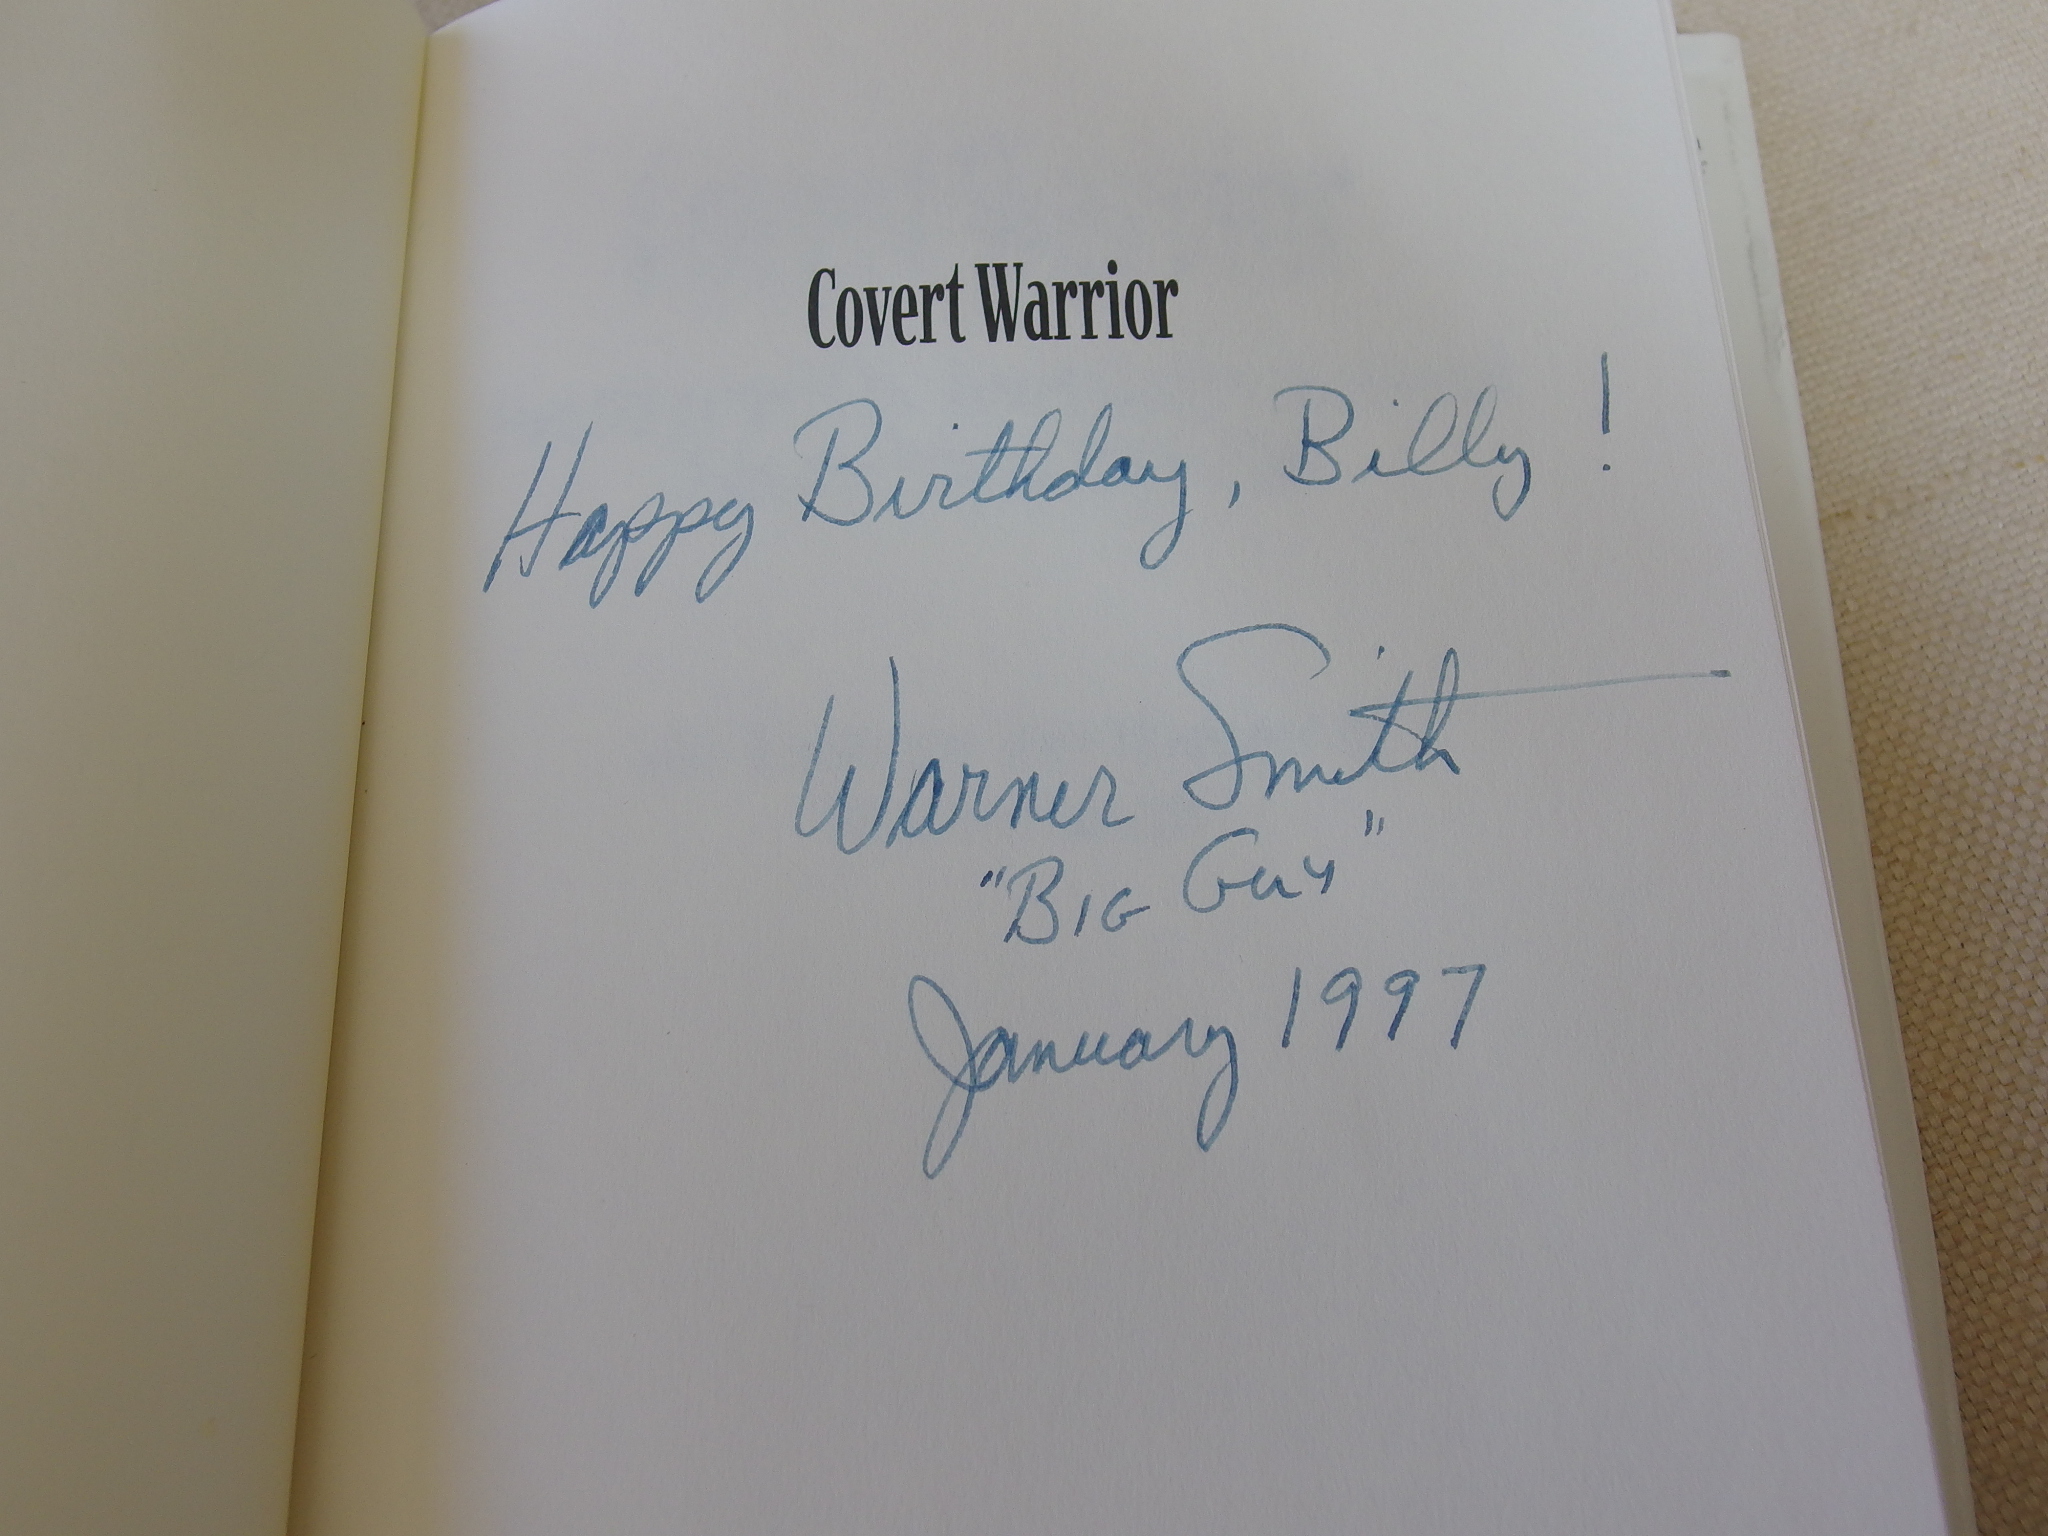 Covert Warrior
Happy Birthday, Billy!
Warner Smith
"Big Guy"
January 1997